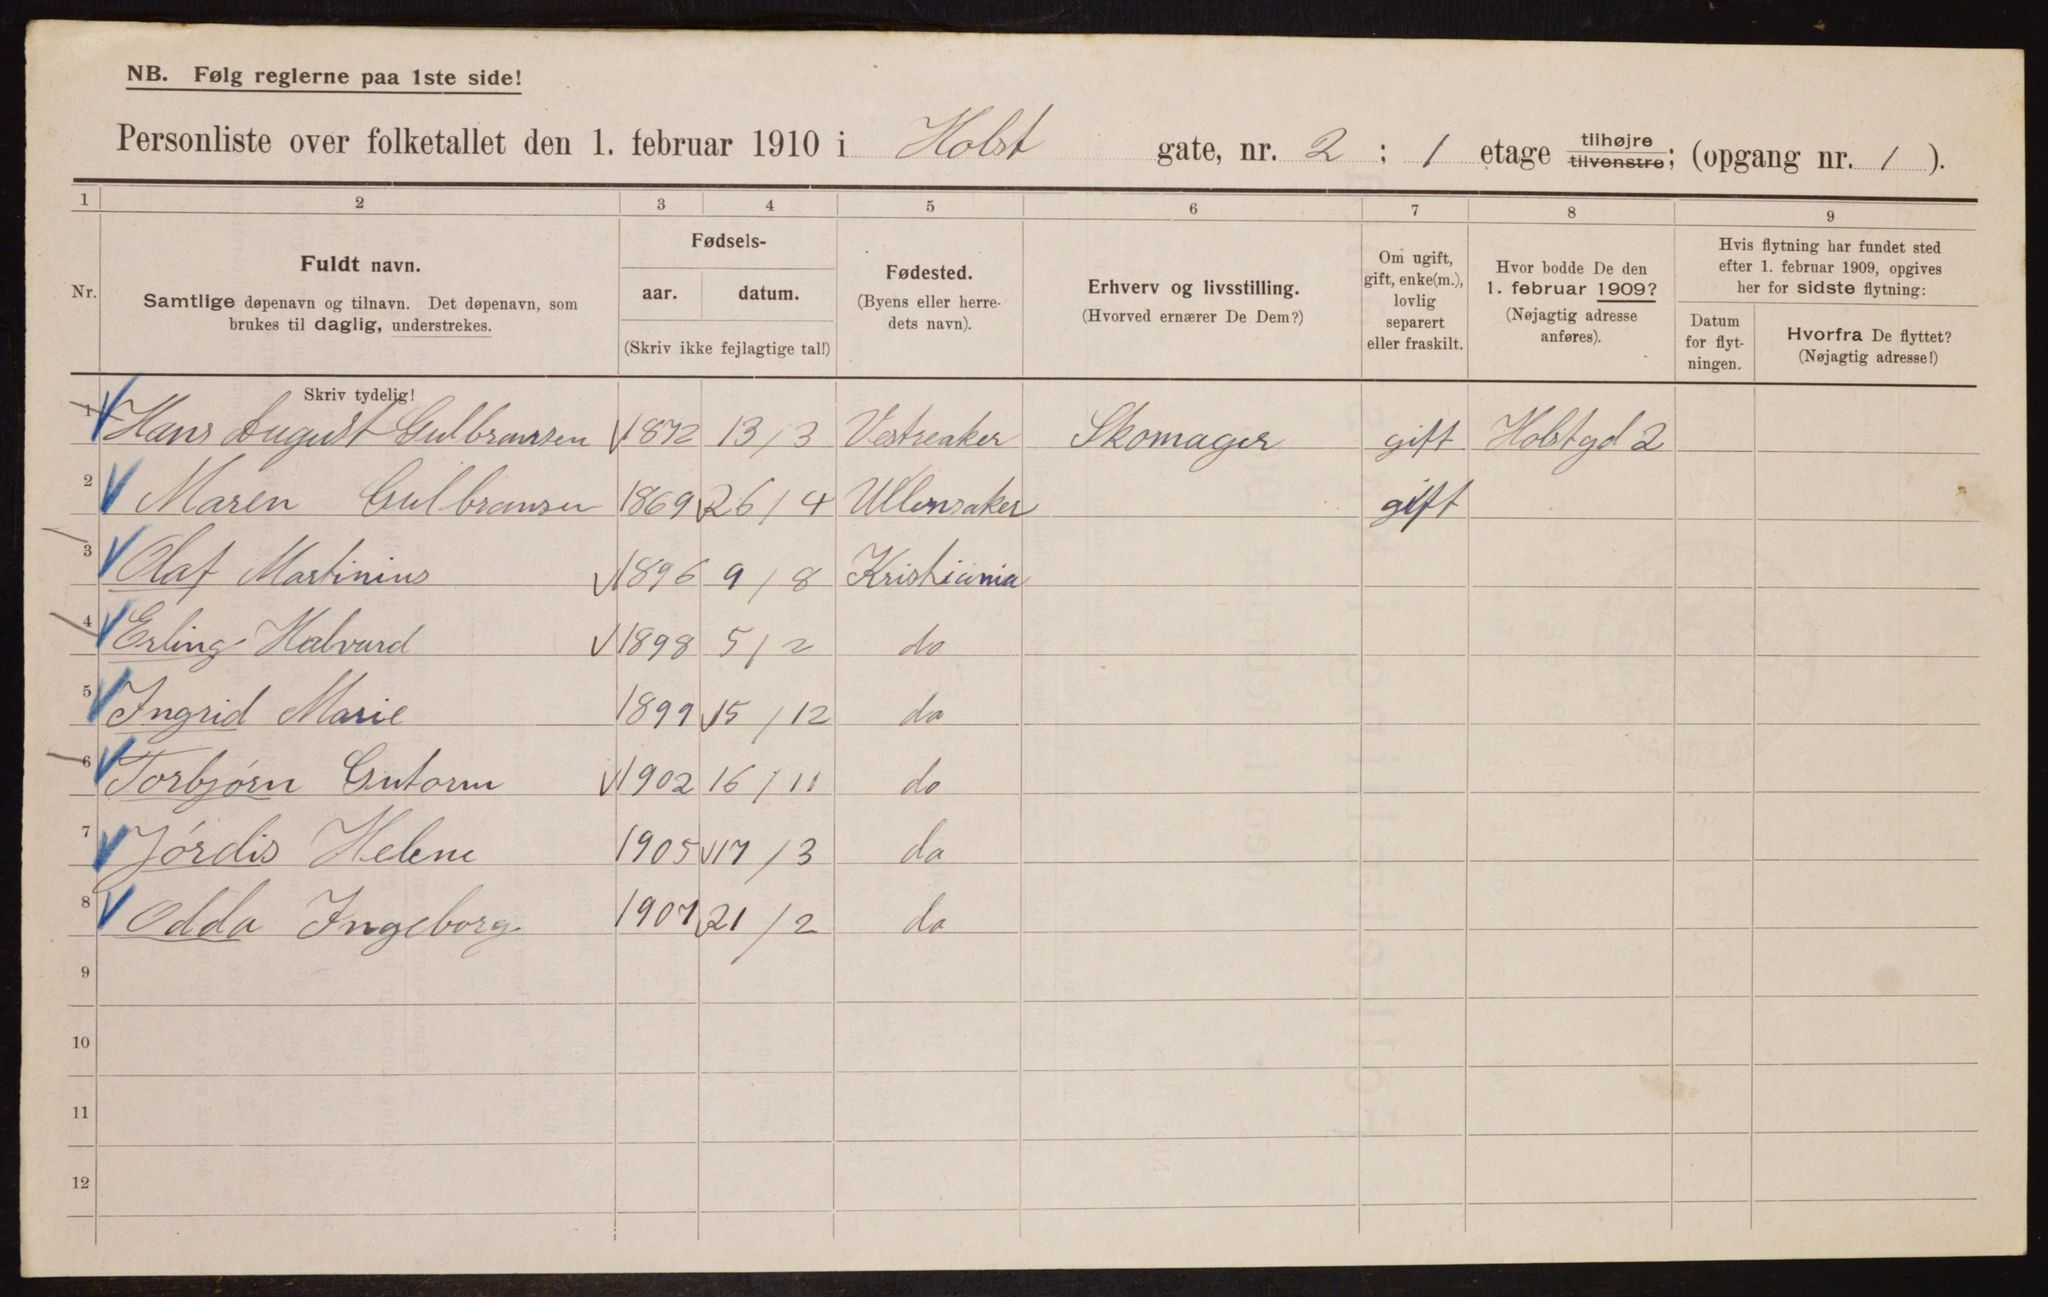 NB. Følg reglerne paa 1ste side!
Personliste over folketallet den 1. februar 1910 i Holst gate, nr. 2 ; 1 etage tilhøjre tilvenstre; (opgang nr. 1 ).
1 2 3 4 5 6 7 8 9
Nr. Fuldt navn. Samtlige døpenavn og tilnavn. Det døpenavn, som brukes til daglig, understrekes.
Fødsels- aar. datum. (Skriv ikke fejlagtige tal!)
Fødested. (Byens eller herredets navn).
Erhverv og livsstilling. (Hvorved ernærer De Dem?)
Om ugift, gift, enke(m.), lovlig separert eller fraskilt.
Hvor bodde De den 1. februar 1909? (Nøjagtig adresse anføres).
Hvis flytning har fundet sted efter 1. februar 1909, opgives her for sidste flytning:
Datum for flytningen. Hvorfra De flyttet? (Nøjagtig adresse!)
Skriv tydelig!
1 Hans August Gulbransen 1872 13/3 Vestreaker Skomager gift Holstgd 2
2 Maren Gulbransen 1869 26/4 Ullensaker gift
3 Olaf Martinius 1896 9/8 Kristiania
4 Erling Halvard 1898 5/2 do
5 Ingrid Marie 1899 15/12 do
6 Torbjørn Gutorm 1902 16/11 do
7 Jórdis Helene 1905 17/3 do
8 Odda Ingeborg 1907 21/2 do
9
10
11
12